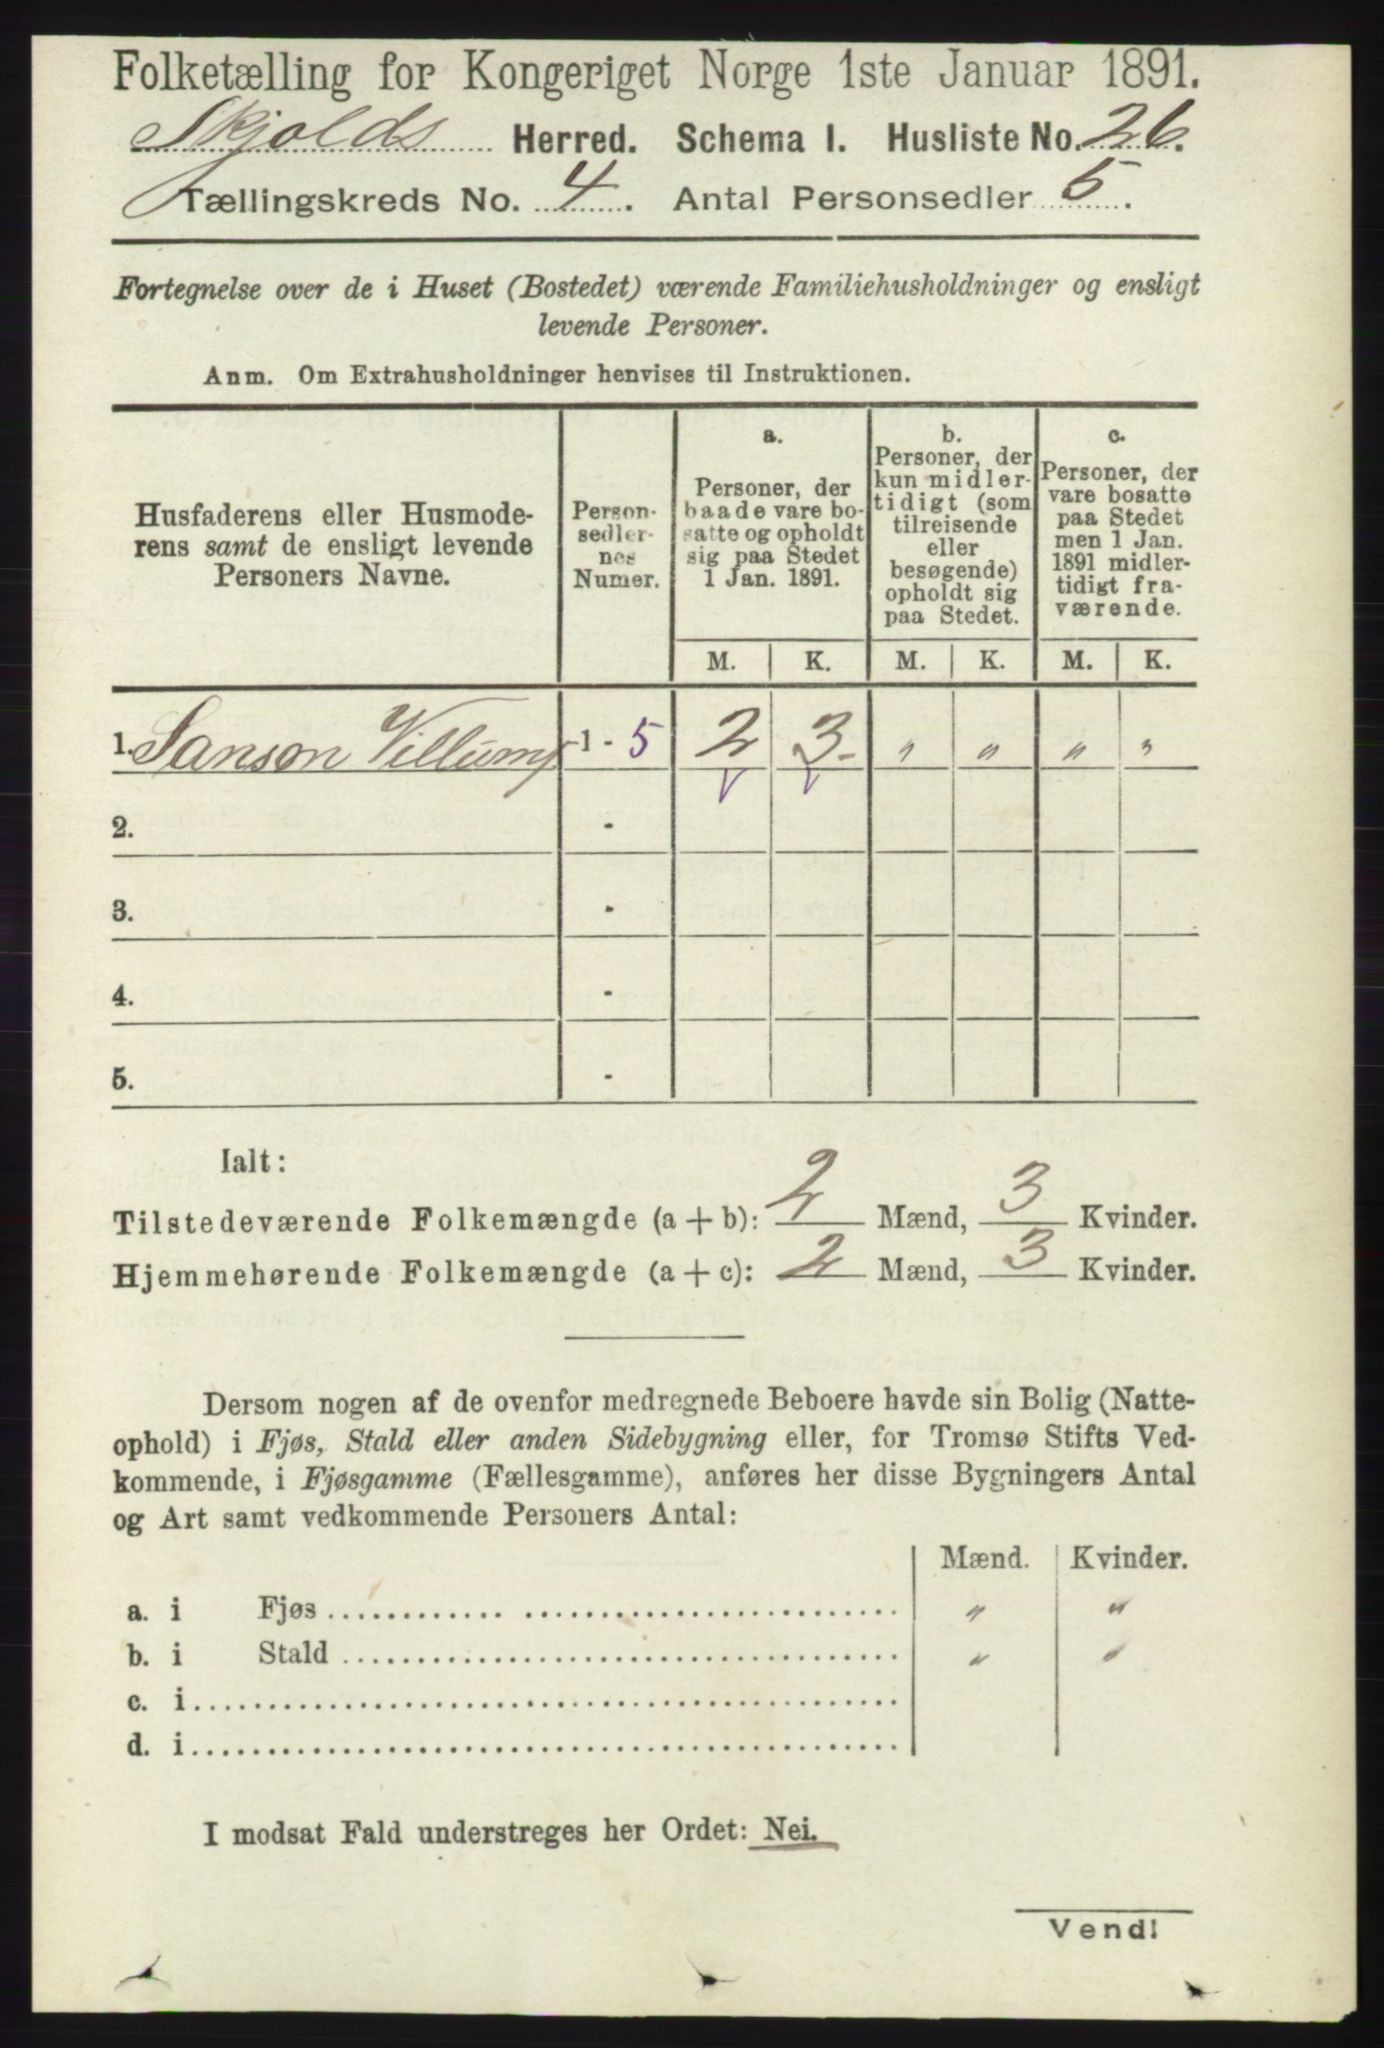 Folketælling for Kongeriget Norge 1ste Januar 1891.
Skjolds Herred. Schema I. Husliste No. 26.
Tællingskreds No. 4. Antal Personsedler 5.
Fortegnelse over de i Huset (Bostedet) værende Familiehusholdninger og ensligt
levende Personer.
Anm. Om Extrahusholdninger henvises til Instruktionen.
Husfaderens eller Husmode-
rens samt de ensligt levende
Personers Navne.
Person-
sedler-
nes
Numer.
a.
Personer, der
baade vare bo-
satte og opholdt
sig paa Stedet
1 Jan. 1891.
b.
Personer, der
kun midler-
tidigt (som
tilreisende
eller
besøgende)
opholdt sig
paa Stedet.
c.
Personer, der
vare bosatte
paa Stedet
men 1 Jan.
1891 midler-
tidigt fra-
værende.
M. K. M. K. M. K.
1. Sanson 1 - 5 2 3 - " " " "
2. -
3. -
4. -
5. -
Ialt:
Tilstedeværende Folkemængde (a + b): 2 Mænd, 3 Kvinder.
Hjemmehørende Folkemængde (a + c): 2 Mænd, 3 Kvinder.
Dersom nogen af de ovenfor medregnede Beboere havde sin Bolig (Natte-
ophold) i Fjøs, Stald eller anden Sidebygning eller, for Tromsø Stifts Ved-
kommende, i Fjøsgamme (Fællesgamme), anføres her disse Bygningers Antal
og Art samt vedkommende Personers Antal:
Mænd. Kvinder.
a. i Fjøs " "
b. i Stald " "
c. i
d. i
I modsat Fald understreges her Ordet: Nei.
Vend!